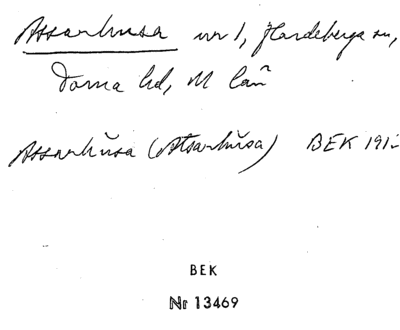 Assarhusa nr 1, Hardeberga sn,
Torna hd, M län
Assarhŭsa (Atsarhŭsa) BEK 191
BEK
Nr 13469